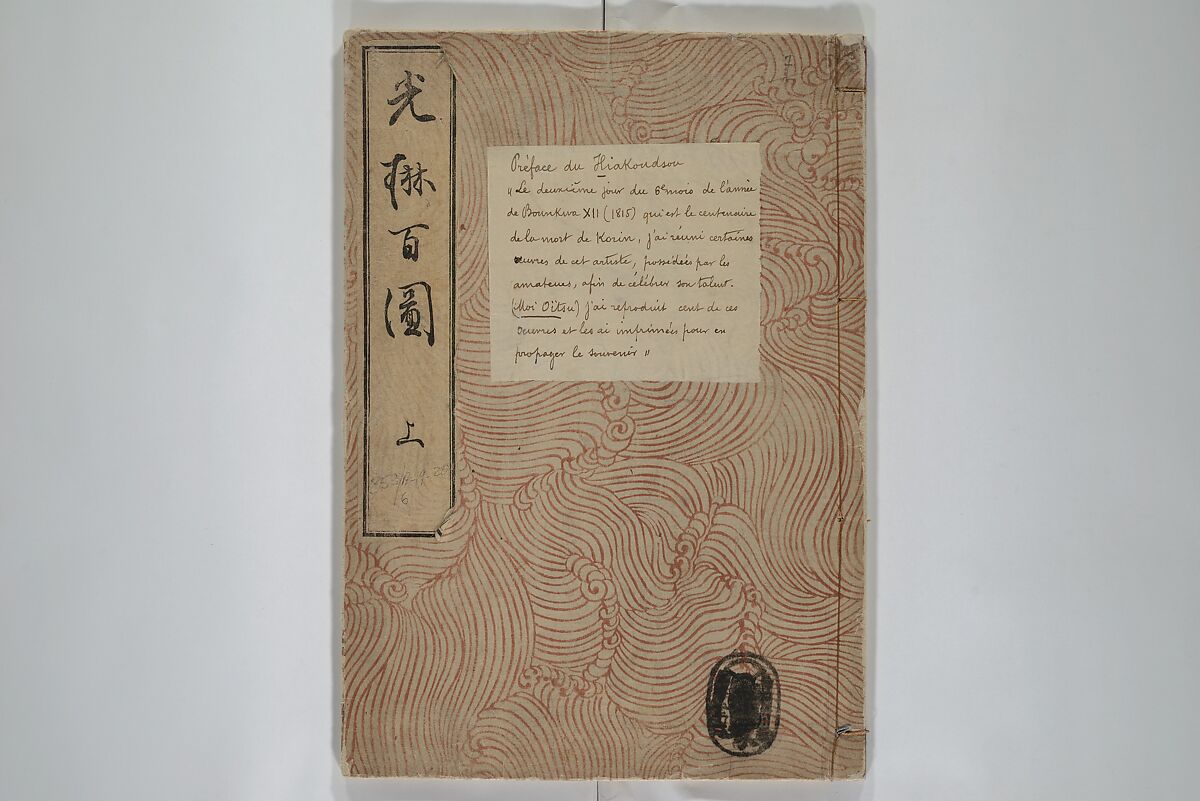 光琳百圖 上
Préface du Hiakoudsou
"Le deuxième jour du 6e mois de l'année
de Bounkwa XII (1815) qui est le centenaire
de la mort de Korin, j'ai réuni certaines
œuvres de cet artiste, possédées par les
amateurs, afin de célébrer son talent.
(Moi Oïtsu) j'ai reproduit cent de ces
œuvres et les ai imprimées pour en
propager le souvenir"
7
6